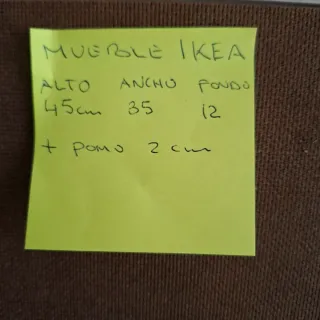 MUEBLE IKEA
ALTO ANCHO FONDO
45cm 35 12
+ POMO 2 cm